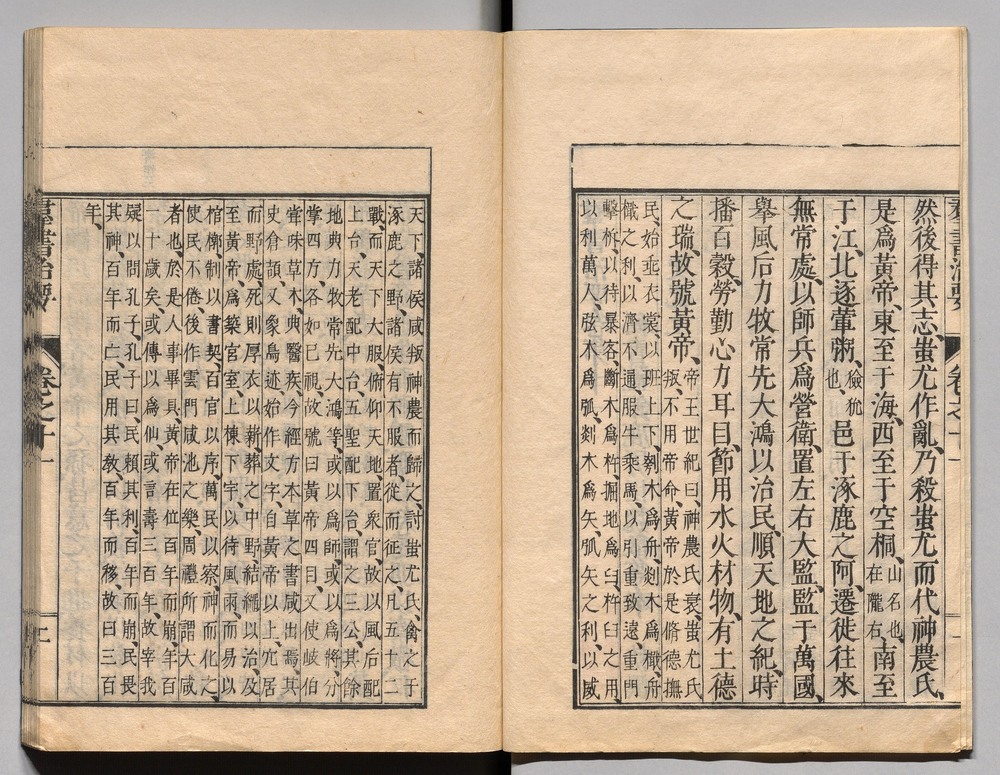 羣書治要 卷之十一
然後得其志、蚩尤作亂、乃殺蚩尤而代神農氏、
是爲黃帝、東至于海、西至于空桐、山名也、在隴右、南至
于江、北逐葷粥、獫狁也、邑于涿鹿之阿、遷徙往來
無常處、以師兵爲營衛、置左右大監、監于萬國、
舉風后力牧常先大鴻以治民、順天地之紀、時
播百穀、勞勤心力耳目、節用水火材物、有土德
之瑞、故號黃帝、帝王世紀曰、神農氏衰、蚩尤氏
叛、不用帝命、黃帝於是脩德撫
民、始垂衣裳、以班上下、刳木爲舟、剡木爲檝、舟
檝之利、以濟不通、服牛乘馬、以引重致遠、重門
擊柝、以待暴客、斷木爲杵、掘地爲臼、杵臼之用、
以利萬人、弦木爲弧、剡木爲矢、弧矢之利、以威
天下、諸侯咸叛神農而歸之、討蚩尤氏、禽之于
涿鹿之野、諸侯有不服者、從而征之、凡五十二
戰、而天下大服、俯仰天地、置衆官、故以風后配
上台、天老配中台、五聖配下台、謂之三公、其餘
地典力牧常先大鴻等、或以爲師、或以爲將、分
掌四方、各如己視、故號曰黃帝四目、又使岐伯
嘗味草木、典醫疾、今經方本草之書咸出焉、其
史倉頡、又象鳥迹始作文字、自黃帝以上、穴居
而野處、死則厚衣以薪、葬之中野、結繩以治、及
至黃帝、爲築宮室、上棟下宇、以待風雨、而易以
棺槨、制以書契、百官以序、萬民以察、神而化之、
使民不倦、後作雲門咸池之樂、周禮所謂大咸
者也、於是人事畢具、黃帝在位百年而崩、年百
一十歲矣、或傳以爲仙、或言壽三百年、故宰我
疑以問孔子、孔子曰、民賴其利、百年而崩、民畏
其神、百年而亡、民用其教、百年而移、故曰三百
年、
羣書治要 卷之十一 二